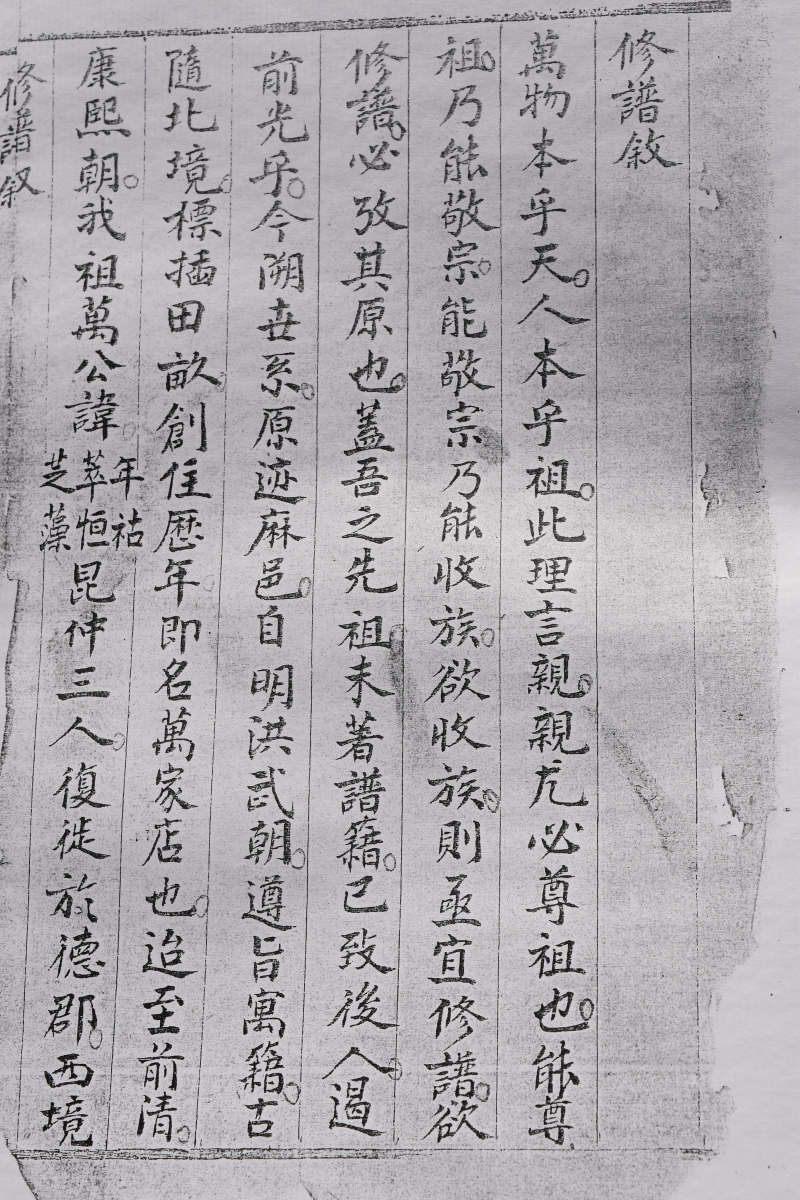 修譜敘
萬物本乎天。人本乎祖。此理言親。親尤必尊祖也。能尊
祖。乃能敬宗。能敬宗乃能收族。欲收族。則亟宜修譜。欲
修譜。必攷其原也。蓋吾之先祖未著譜籍。已致後人。遏
前光乎。今溯世系。原迹麻邑。自明洪武朝。遵旨寓籍。古
隨北境。標插田畝。創住歷年即名萬家店也。迨至前清。
康熙朝。我祖萬公諱年祜萃恒芝藻昆仲三人。復徙於德郡。西境
修譜叙